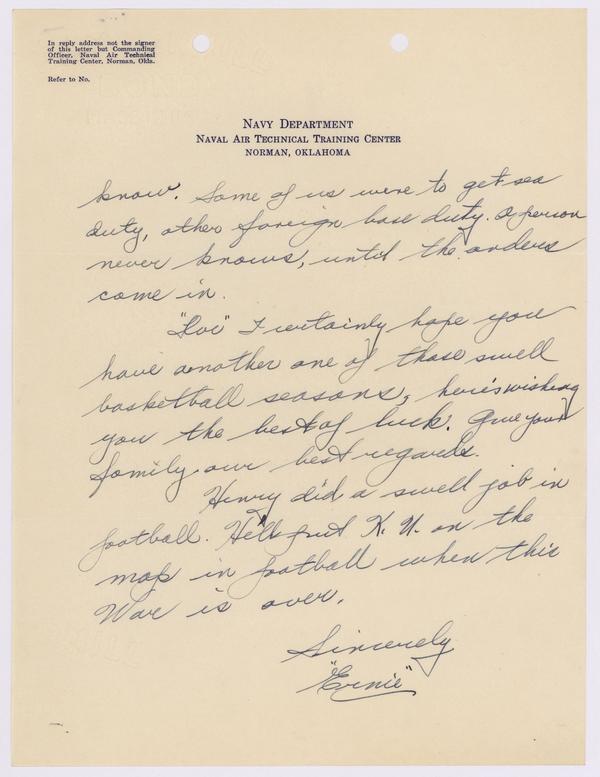 In reply address not the signer
of this letter but Commanding
Officer, Naval Air Technical
Training Center, Norman, Okla.
Refer to No.
NAVY DEPARTMENT
NAVAL AIR TECHNICAL TRAINING CENTER
NORMAN, OKLAHOMA
know. Some of us were to get sea
duty, other foreign base duty. A person
never knows, until the orders
come in.
"Doc" I certainly hope you
have another one of those swell
basketball seasons, here's wishing
you the best of luck. Give your
family our best regards.
Henry did a swell job in
football. He'll put K. U. on the
map in football when this
War is over.
Sincerely
"Ernie"